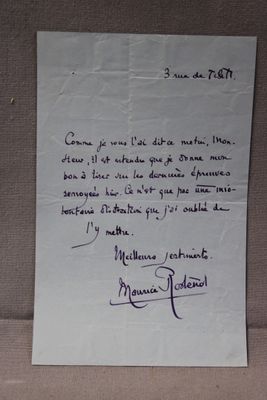 3 rue de
Comme je vous l'ai dit ce matin, Mon-
sieur, il est entendu que je donne mon
bon à tirer sur les dernières épreuves
renvoyées hier. Ce n'est que par une
que j'ai oublié de
l'y mettre.
Meilleurs sentiments.
Maurice Rostand